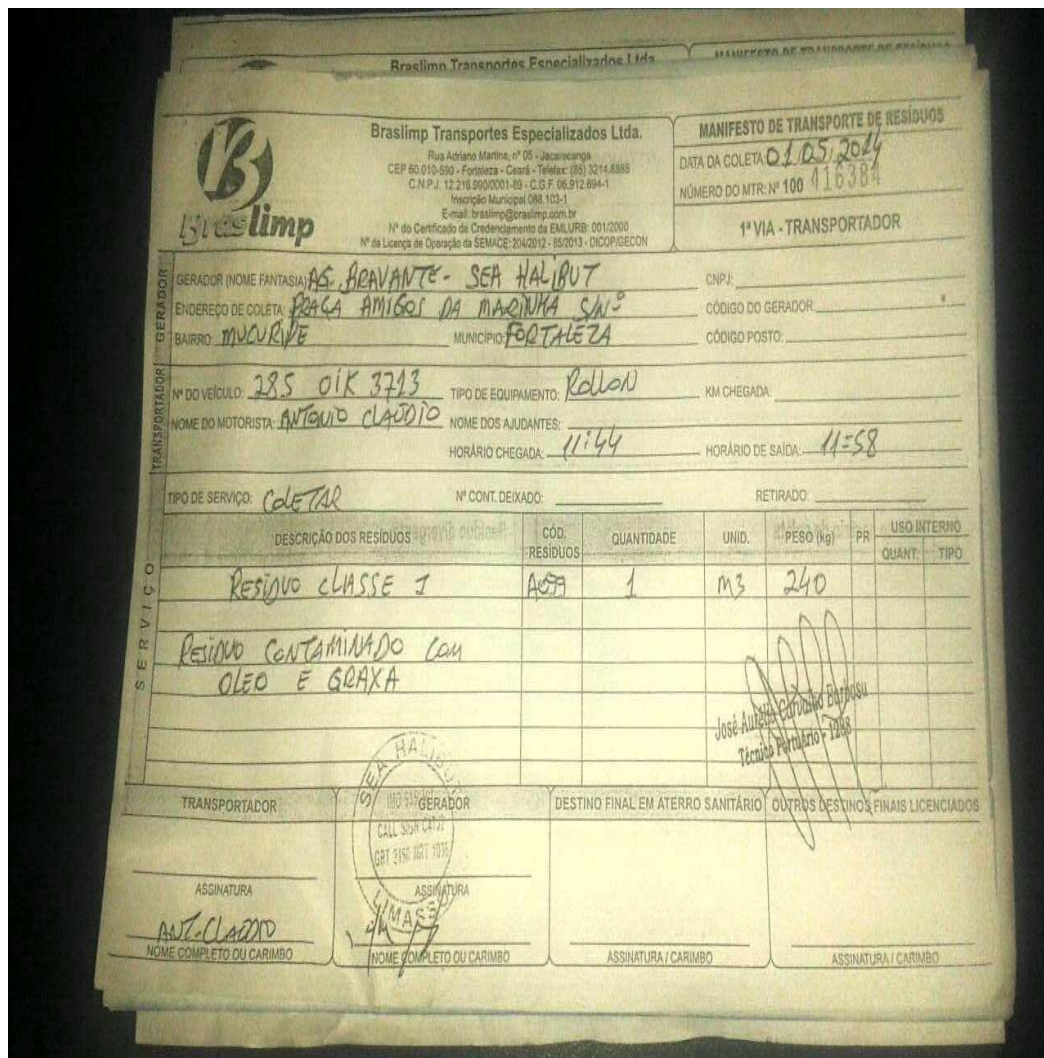 Braslimp Transportes Especializados Ltda.
MANIFESTO DE TRANSPORTE DE RESÍDUOS
Braslimp
Braslimp Transportes Especializados Ltda.
Rua Adriano Martins, nº 05 - Jacarecanga
CEP 60.010-590 - Fortaleza - Ceará - Telefax: (85) 3214.8888
C.N.P.J. 12.216.990/0001-89 - C.G.F. 06.912.694-1
Inscrição Municipal 088.103-1
E-mail: braslimp@braslimp.com.br
Nº do Certificado de Credenciamento da EMLURB: 001/2000
Nº da Licença de Operação da SEMACE: 204/2012 - 85/2013 - DICOP/GECON
MANIFESTO DE TRANSPORTE DE RESÍDUOS
DATA DA COLETA: 01.05.2014
NÚMERO DO MTR: Nº 100 416384
1ª VIA - TRANSPORTADOR
GERADOR
GERADOR (NOME FANTASIA): AG. BRAVANTE - SEA HALIBUT CNPJ:
ENDEREÇO DE COLETA: PRAÇA AMIGOS DA MARINHA S/Nº CÓDIGO DO GERADOR:
BAIRRO: MUCURIPE MUNICÍPIO: FORTALEZA CÓDIGO POSTO:
TRANSPORTADOR
Nº DO VEÍCULO: 285 OIK 3713 TIPO DE EQUIPAMENTO: ROLLON KM CHEGADA:
NOME DO MOTORISTA: ANTONIO CLAÚDIO NOME DOS AJUDANTES:
HORÁRIO CHEGADA: 11:44 HORÁRIO DE SAÍDA: 11=58
SERVIÇO
TIPO DE SERVIÇO: COLETAR Nº CONT. DEIXADO: RETIRADO:
DESCRIÇÃO DOS RESÍDUOS CÓD. RESÍDUOS QUANTIDADE UNID. PESO (kg) PR USO INTERNO
QUANT. TIPO
RESÍDUO CLASSE I A099 1 M3 240
RESÍDUO CONTAMINADO COM
OLEO E GRAXA
José Aurélio Carvalho Barbosa
Técnico Portuário - 1288
SEA HALIBUT
CALL SIGN
LIMASSOL
TRANSPORTADOR GERADOR DESTINO FINAL EM ATERRO SANITÁRIO OUTROS DESTINOS FINAIS LICENCIADOS
ASSINATURA ASSINATURA
ANT. CLAUDIO
NOME COMPLETO OU CARIMBO NOME COMPLETO OU CARIMBO ASSINATURA / CARIMBO ASSINATURA / CARIMBO